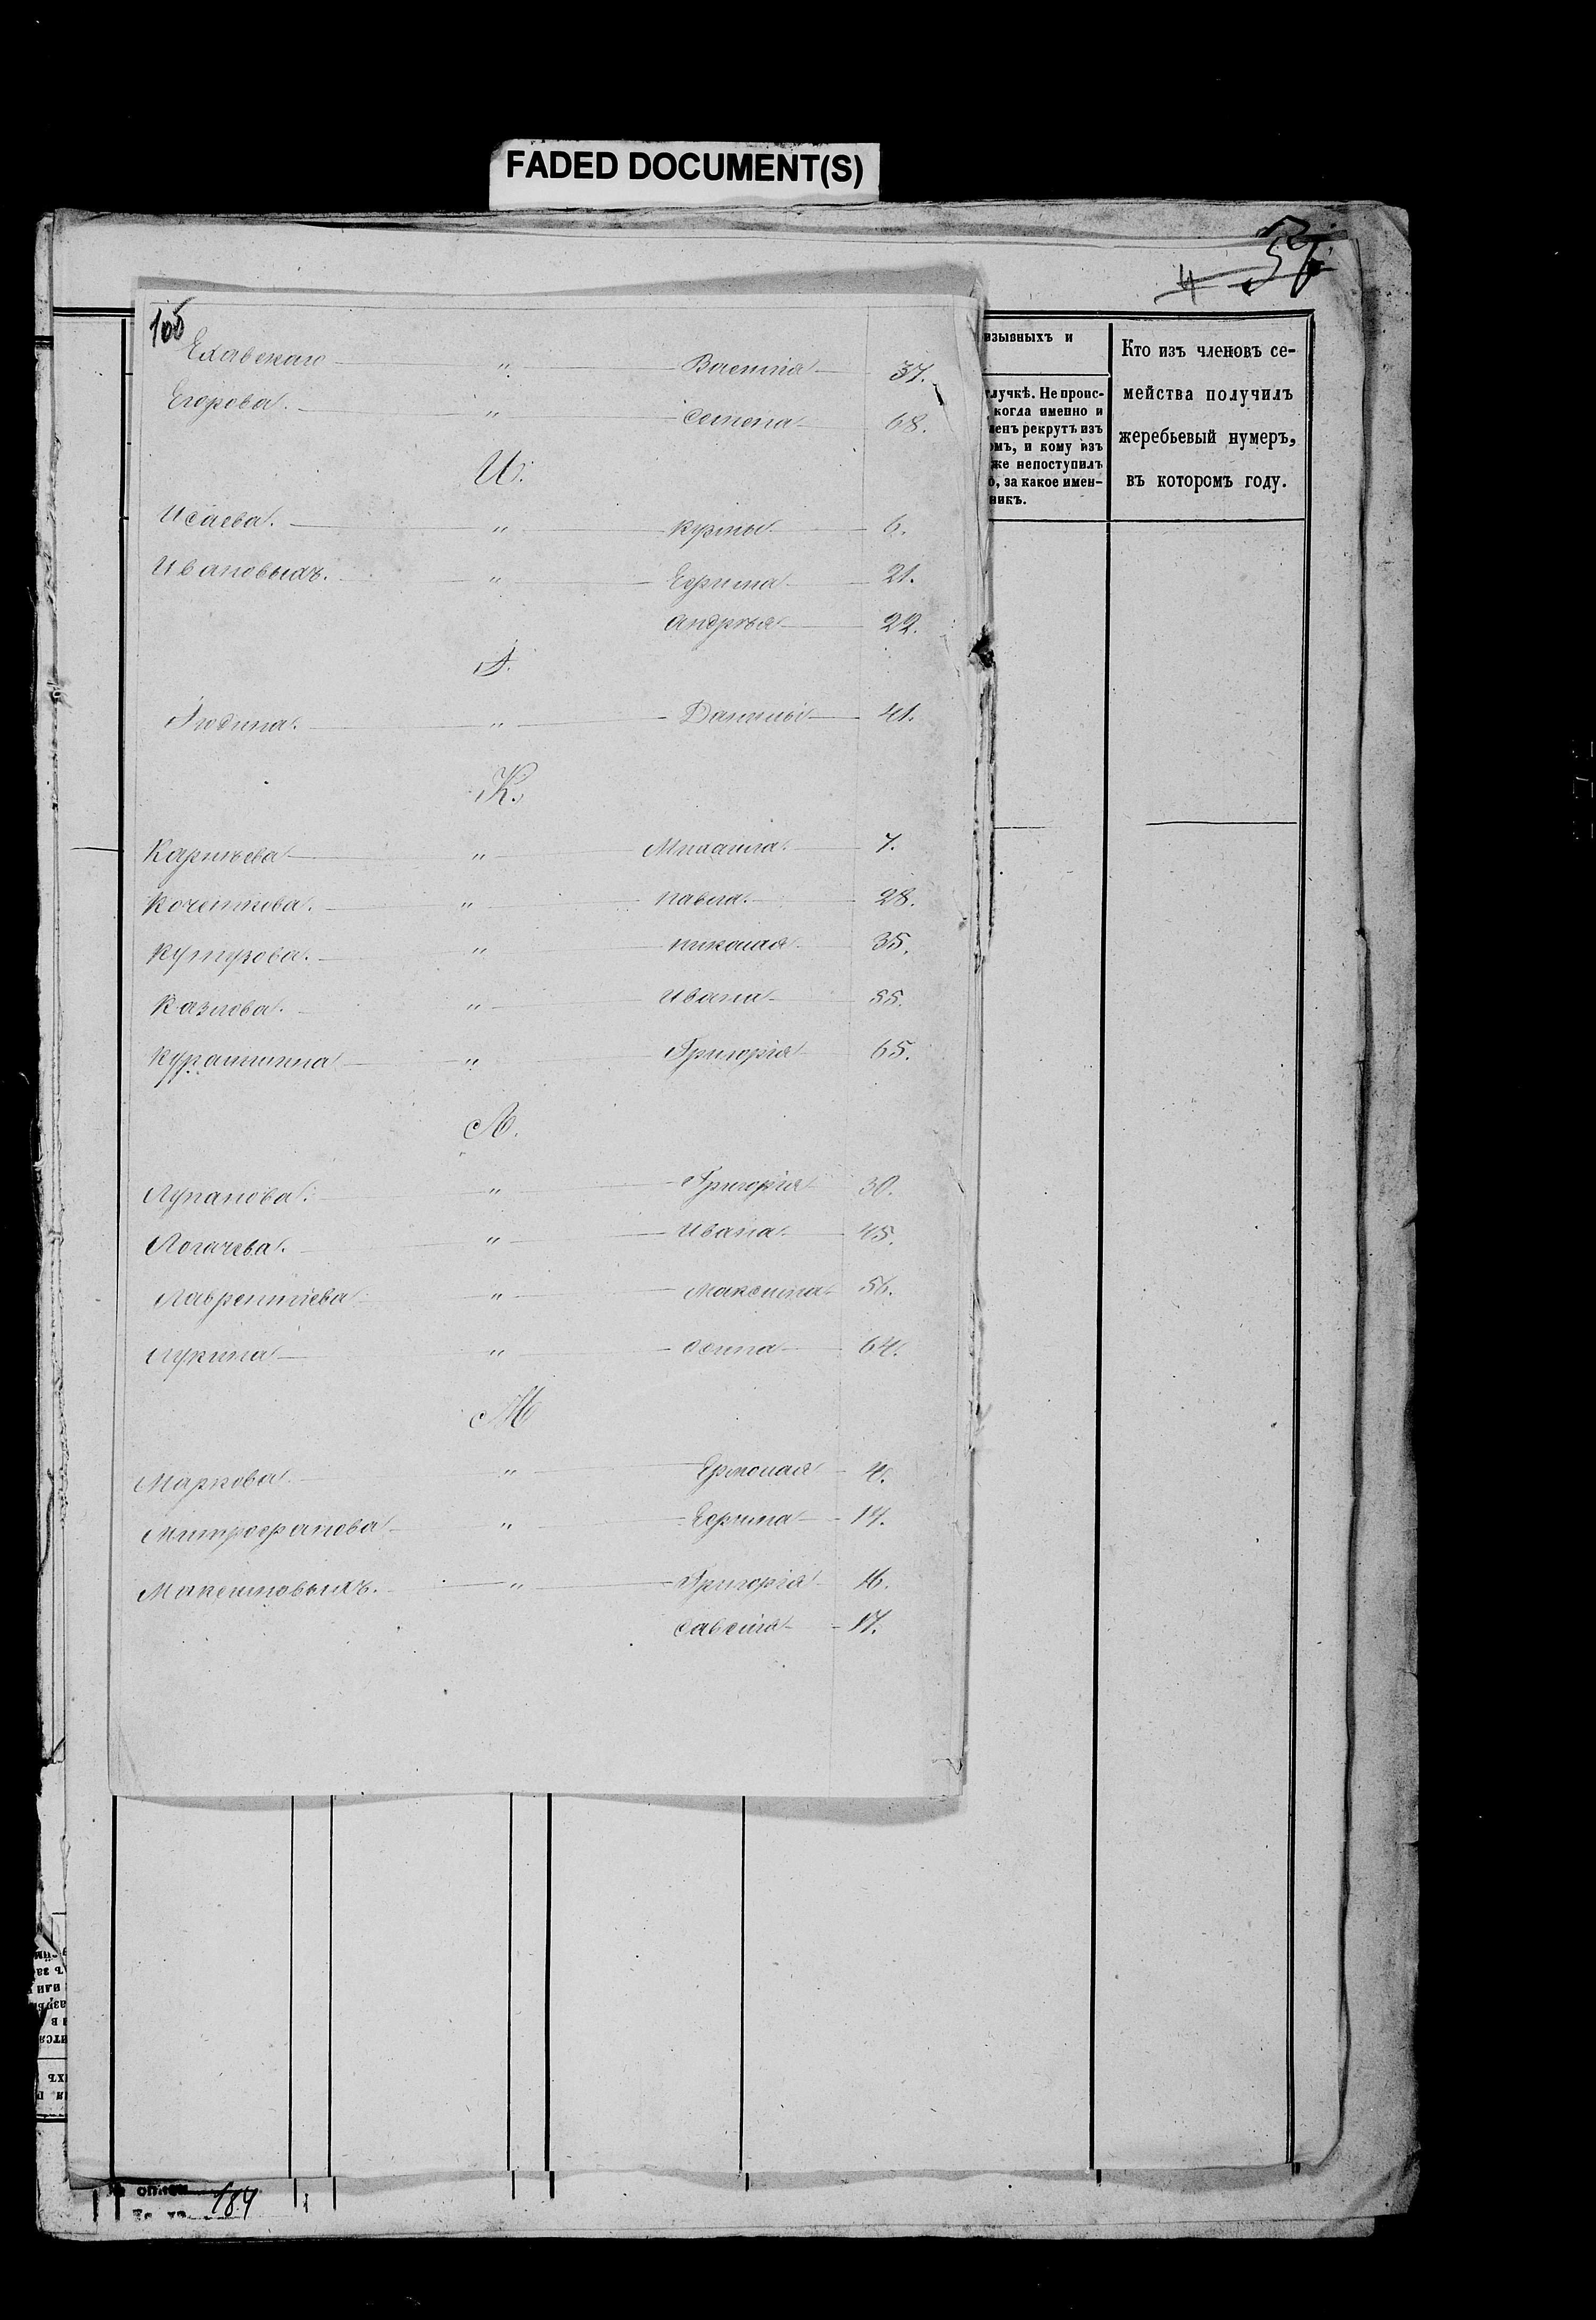 FADED DOCUMENT(S)
57
4
105
Елавскаго " Василiя 37.
Егорова. " Семена 68.
И.
Исаева. " Кузмы 6.
Ивановыхъ. " Ефима 21.
Андрея 22.
I.
Iюдина. " Данилы 41.
К.
" Михаила 7.
Кочеткова. " Павла. 28.
Кутузова. " Николая 35.
Казлова. " Ивана 55.
" Григорiя 65.
Л.
Лупанова. " Григорiя 30.
Логачева. " Ивана 45.
Лаврентiева " Максима 56.
Лукина " Осипа 64.
М
Маркова " Ермолая 4.
Митрофанова " Ефима 14.
" Григорiя 16.
Савелiя 17.
изывныхъ и
лучкѣ. Не проис-
когда именно и
менъ рекрутъ изъ
омъ, и кому изъ
же непоступилъ
о, за какое имен-
никъ.
Кто изъ членовъ се-
мейства получилъ
жеребьевый нумеръ,
въ которомъ году.
184